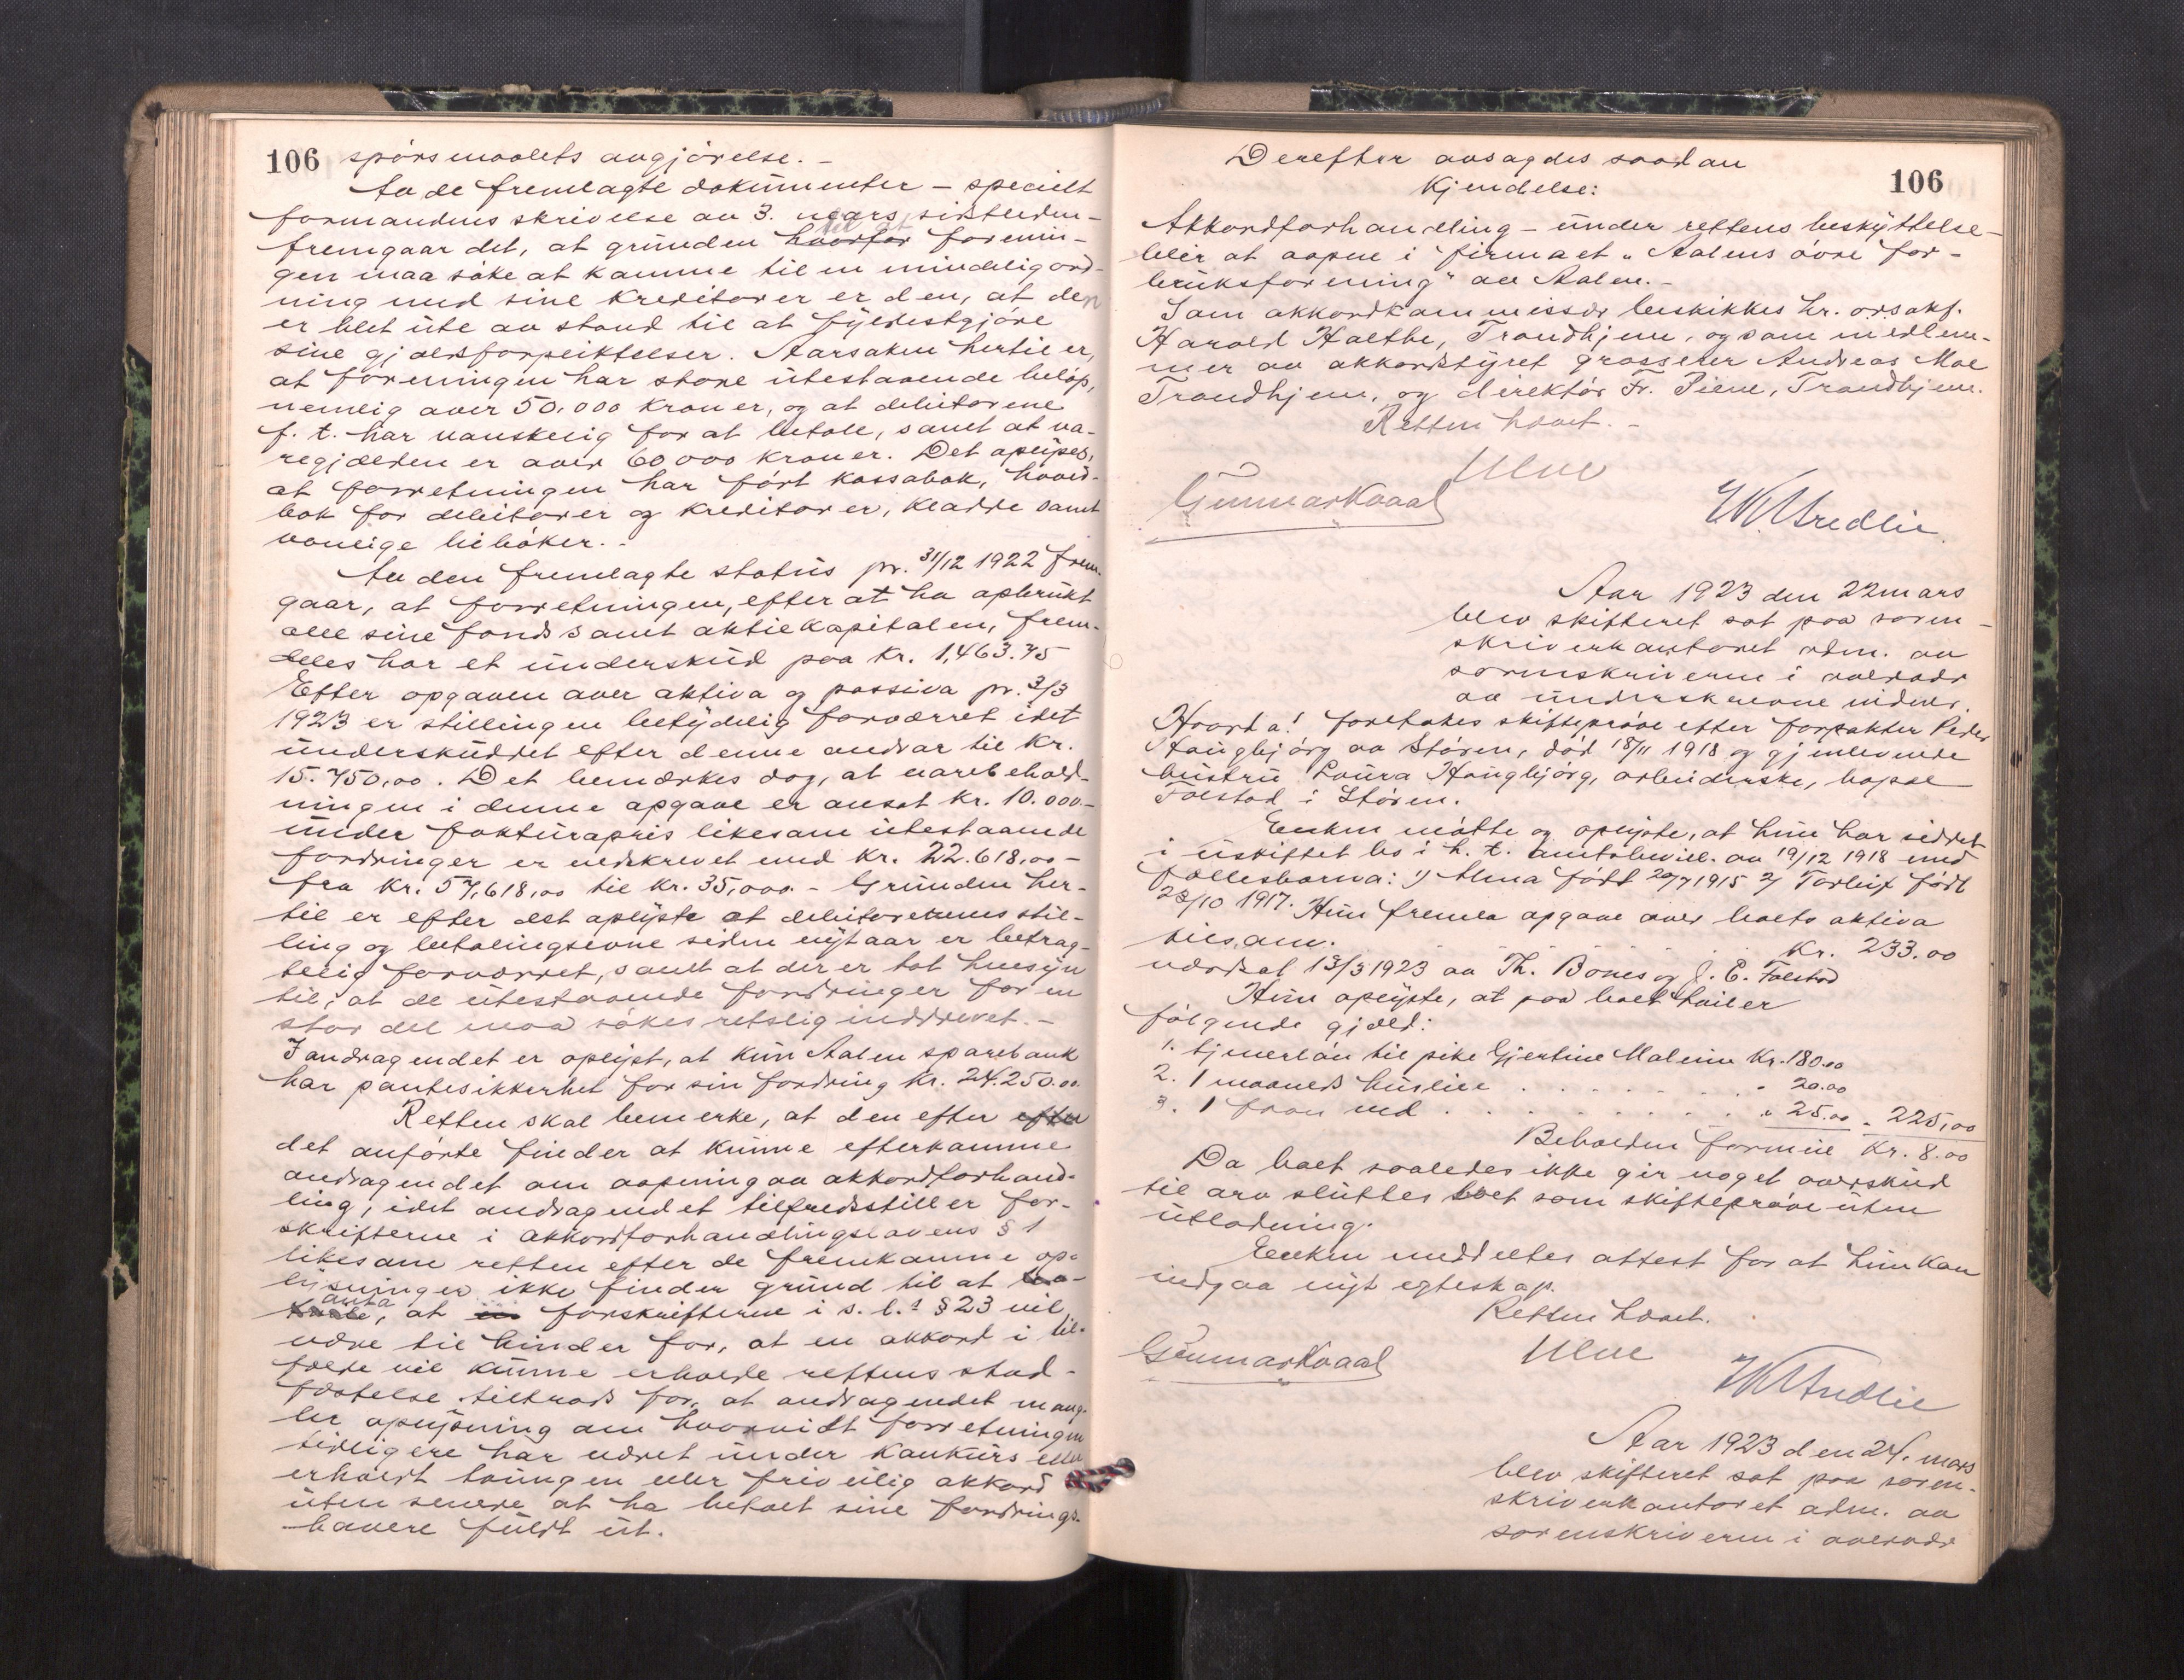 106 spörsmaalets avgjörelse. -
Av de fremlagte dokumenter - specielt
formandens skrivelse av 3. mars sistleden -
fremgaar det, at grunden til at forenin-
gen maa söke at komme til en mindelig ord-
ning med sine kreditorer er den, at den
er blet ute av stand til at fyldestgjöre
sine gjældsforpliktelser. Aarsaken hertil er,
at foreningen har store utestaaende belöp,
nemlig over 50.000 kroner, og at debitorene
f. t. har vanskelig for at betale, samt at va-
regjælden er over 60 000 kroner. Det oplyses,
at forretningen har fört kassabok, hoved-
bok for debitorer og kreditorer, kladde samt
vanlige biböker. -
Av den fremlagte status pr. 31/12 1922 frem-
gaar, at forretningen, efter at ha opbrukt
alle sine fond samt aktiekapitalen, frem-
deles har et underskud paa kr. 1,463.75
Efter opgaven over aktiva og passiva pr. 3/3
1923 er stillingen betydelig forværret idet
underskuddet efter denne andrar til kr.
15.750,00. Det bemerkes dog, at varebehold-
ningen i denne opgave er ansat kr. 10.000.-
under fakturapris likesom utestaaende
fordringer er nedskrevet med kr. 22.618,00 -
fra kr. 57,618,00 til kr. 35,000.- Grunden her-
til er efter det oplyste at debitorernes stil-
ling og betalingsevne siden nytaar er betrag-
telig forværret, samt at der er tat hensyn
til, at de utestaaende fordringer for en
stor del maa sökes retslig inddrevet. -
I andragendet er oplyst, at kun Aalen sparebank
har pantesikkerhet for sin fordring kr. 24.250.00
Retten skal bemerke, at den efter efter
det anförte finder at kunne efterkomme
andragendet om aapning av akkordforhand-
ling, idet andragendet tilfredsstiller for-
skrifterne i akkordforhandlingslovens § 1
likesom retten efter de fremkomne op-
lysninger ikke finder grund til at
anta, at forskrifterne i s. l.s § 23 vil
være til hinder for, at en akkord i til-
fælde vil kunne erholde rettens stad-
fæstelse tiltrods for, at andragendet mang-
ler oplysning om hvorvidt forretningen
tidligere har været under konkurs eller
erholdt tvungen eller frivillig akkord
uten senere at ha betalt sine fordrings-
havere fuldt ut.
Derefter avsagdes saadan
Kjendelse:
106
Akkordforhandling - under rettens beskyttelse -
blir at aapne i firmaet "Aalens övre for-
bruksforening" av Aalen. -
Som akkordkommissær beskikkes hr. o.r.sakf.
Harald Halthe, Trondhjem, og som medlem-
mer av akkordstyret grosserer Andreas Moe
Trondhjem, og direktör Fr. Piene, Trondhjem.
Retten hævet. -
Ulve
Gunnar Kvaal
Aar 1923 den 22 mars
blev skifteret sat paa soren-
skriverkontoret adm. av
sorenskriveren i overvær
av underskrevne vidner.
Hvorda: foretokes skiftepröve efter forpakter Peder
Haugbjörg av Stören, död 18/11 1918 og gjenlevende
hustru Laura Haugbjörg, arbeiderske, bopæl
Folstad i Stören.
Enken mötte og oplyste, at hun har siddet
i uskiftet bo i h. t. amtsbevill. av 19/12 1918 med
fællesbarna: 1) Alma född 20/7 1915 2/ Torleif född
23/10 1917. Hun fremla opgave over boets aktiva
tilsam. kr. 233.00
værdsat 13/3 1923 av Th. Bones og J. E. Folstad
Hun oplyste, at paa boet hviler
fölgende gjæld:
1. tjenerlön til pike Gjertine Malenin Kr. 180.00
2. 1 maaneds husleie . . . . . . . " 20.00
3. 1 favn ved . . . . . . . . . " 25.00 " 225,00
Beholden formue Kr. 8.00
Da boet saaledes ikke gir noget overskud
til arv sluttes boet som skiftepröve uten
utlodning.
Enken meddeltes attest for at hun kan
indgaa nyt egteskap.
Retten hævet.
Gunnar Kvaal
Ulve
Aar 1923 den 24. mars
blev skifteret sat paa soren-
skriverkontoret adm. av
sorenskriveren i overvær